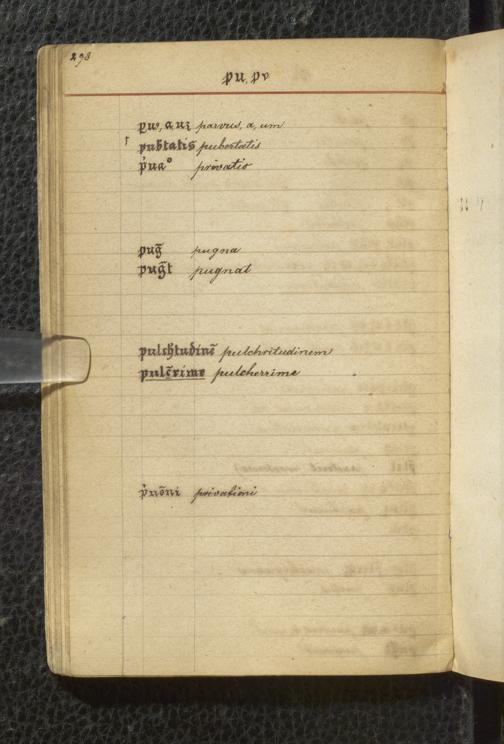 298
pu, pv
puꝰ, a uz parvus, a, um
pub̄tatis pubertatis
p'uaº privatio
pug̃ pugna
pug̃t pugnat
pulch̃tudinē pulchritudinem
pulc̃rime pulcherrime
p'uōni privationi